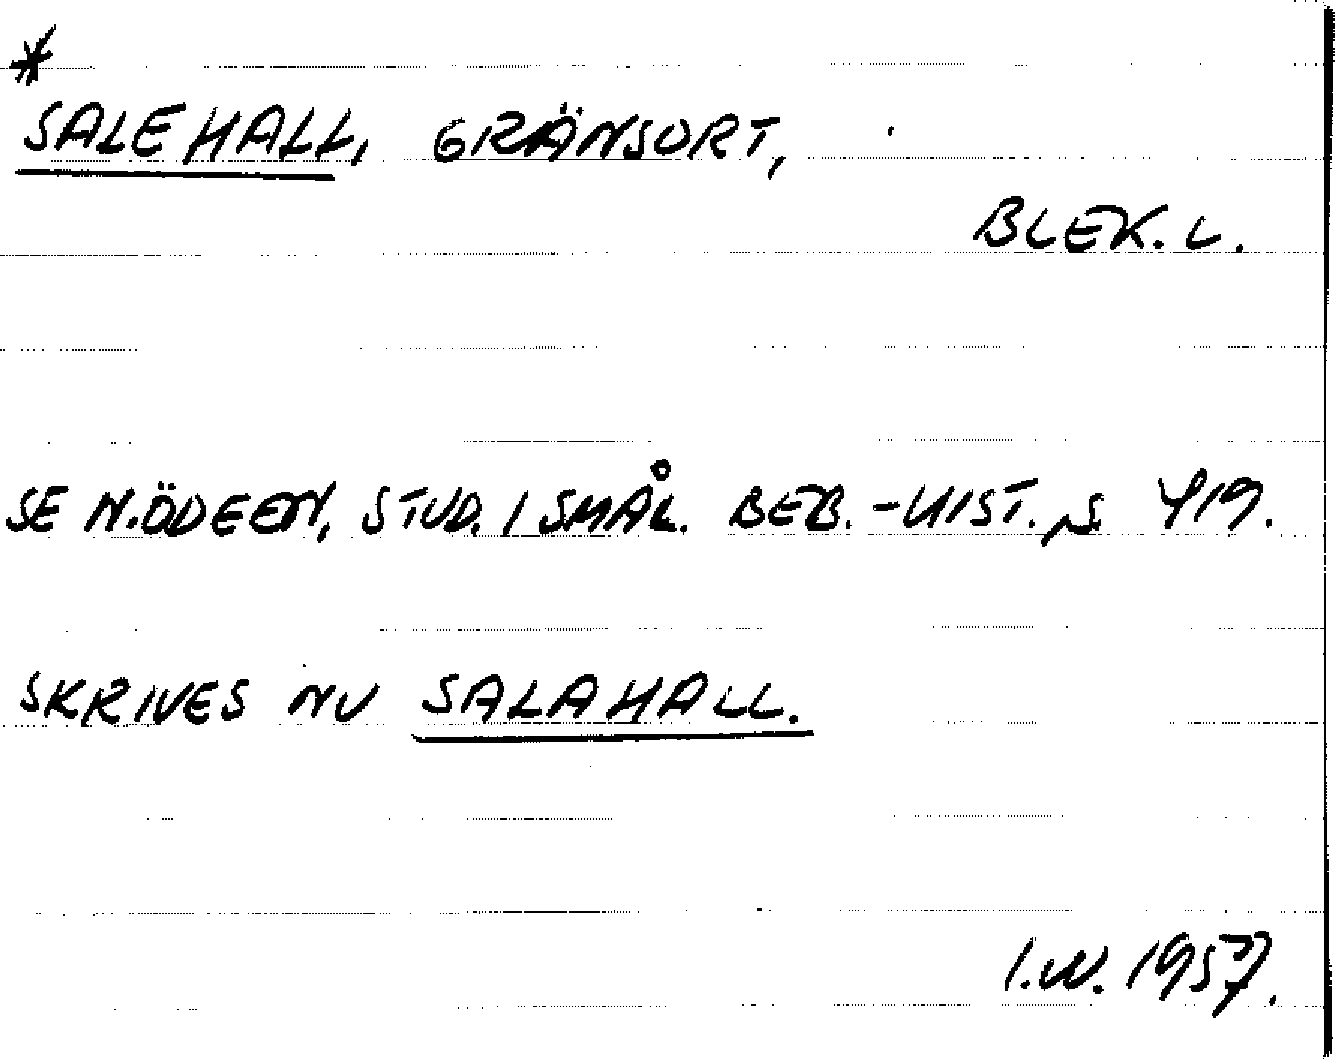 *
SALEHALL, GRÄNSORT,
BLEK. L.
SE N. ÖDEEN, STUD. I SMÅL. BEB.-HIST. s. 419.
SKRIVES NU SALAHALL.
I.W. 1957.